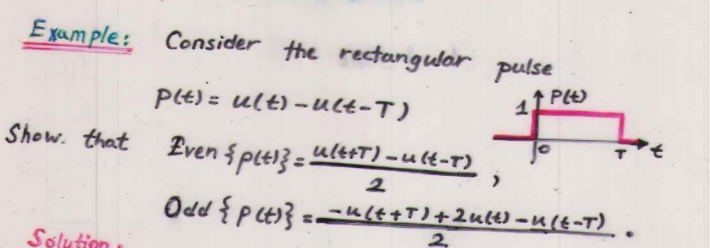 Example: Consider the rectangular pulse
P(t) = u(t) - u(t-T)
1 P(t)
0 T t
Show. that Even {p(t)} = (u(t+T) - u(t-T))/2 ,
Odd {P(t)} = (-u(t+T) + 2u(t) - u(t-T))/2 .
Solution.